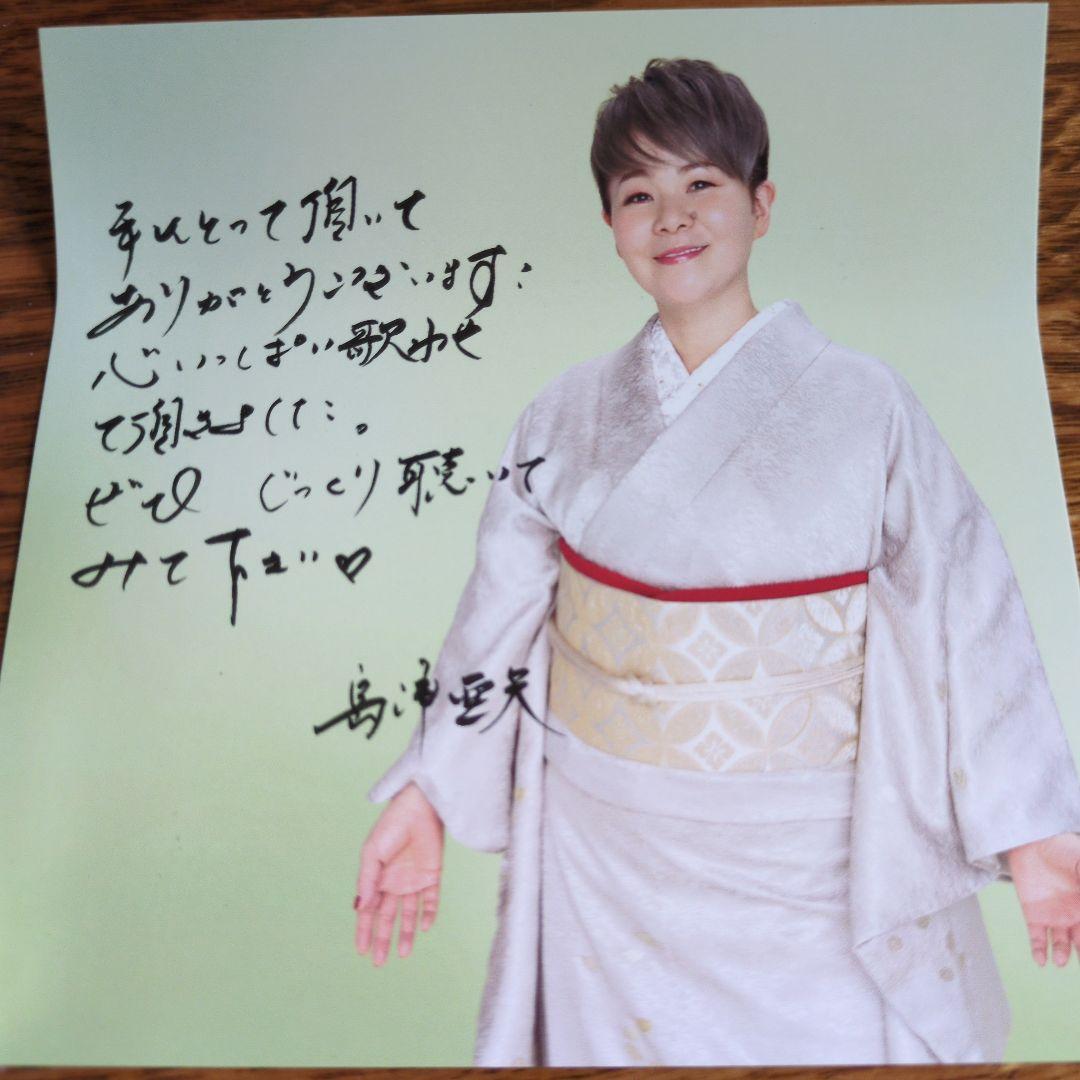 手にとって頂いて
ありがとうございます!
心いっぱい歌わせ
て頂きました。
ぜひ じっくり聴いて
みて下さい♡
島津亜矢